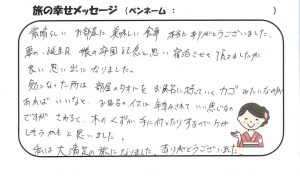 旅の幸せメッセージ（ペンネーム： ）
素晴らしい お部屋に 美味しい 食事 本当に ありがとうございました。
妻の 誕生日 娘の卒園 記念と思い 宿泊させて頂きましたが
良い 思い出に なりました。
気になった所は 部屋のタオルを お風呂に持っていく カゴ みたいなのが
あれば いいなと、 お風呂のイスは 年季がはいって いい感じなの
ですが さわると、 木の くずが 手に付いたりするので ケガ
しそうかもと 思いました。
私は 大満足の 旅になりました。 ありがとうございました。